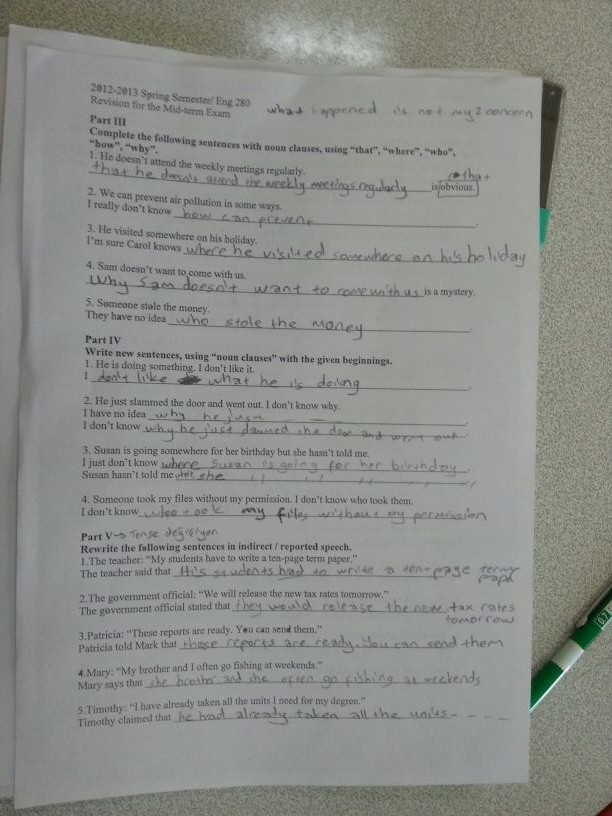 2012-2013 Spring Semester/ Eng 280
Revision for the Mid-term Exam
what happened is not my concern
Part III
Complete the following sentences with noun clauses, using "that", "where", "who",
"how", "why".
1. He doesn't attend the weekly meetings regularly.
that he doesn't attend the weekly meetings regularly is obvious.
that
2. We can prevent air pollution in some ways.
I really don't know how can prevent
3. He visited somewhere on his holiday.
I'm sure Carol knows where he visited somewhere on his holiday
4. Sam doesn't want to come with us.
Why Sam doesn't want to come with us is a mystery.
5. Someone stole the money.
They have no idea who stole the money
Part IV
Write new sentences, using "noun clauses" with the given beginnings.
1. He is doing something. I don't like it.
I don't like what he is doing
2. He just slammed the door and went out. I don't know why.
I have no idea why he just
I don't know why he just the door and went out
3. Susan is going somewhere for her birthday but she hasn't told me.
I just don't know where Susan is going for her birthday
Susan hasn't told me she
4. Someone took my files without my permission. I don't know who took them.
I don't know who took my files without my permission
Part V → Tense
Rewrite the following sentences in indirect / reported speech.
1.The teacher: "My students have to write a ten-page term paper."
The teacher said that His students had to write a ten-page term
2.The government official: "We will release the new tax rates tomorrow."
The government official stated that they would release the new tax rates
tomorrow
3.Patricia: "These reports are ready. You can send them."
Patricia told Mark that those reports are ready. You can send them
4.Mary: "My brother and I often go fishing at weekends."
Mary says that she brother and she often go fishing at weekends
5.Timothy: "I have already taken all the units I need for my degree."
Timothy claimed that he had already taken all the units - - - -
0.7